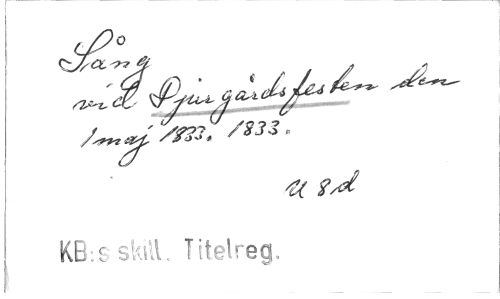 Sång
vid Djurgårdsfesten den
1 maj 1833. 1833.
U 8 d
KB:s skill. Titelreg.